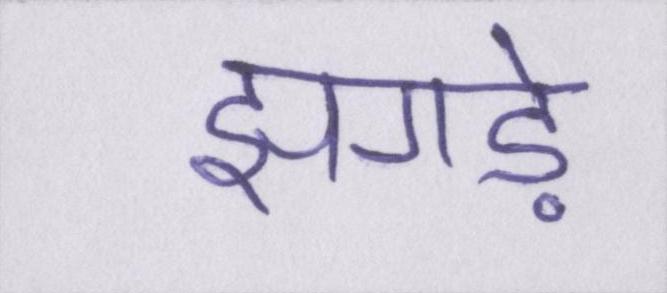 झगड़े